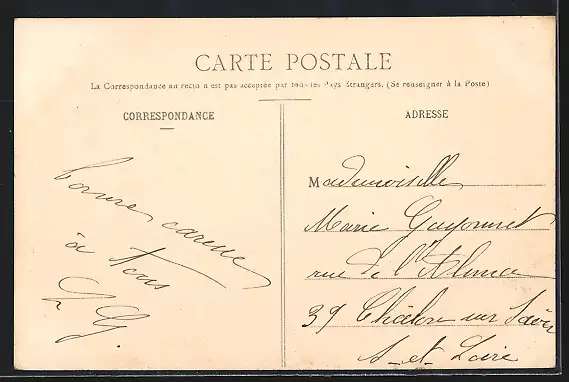 CARTE POSTALE
La Correspondance au recto n'est pas acceptée par tous les Pays Étrangers. (Se renseigner à la Poste)
CORRESPONDANCE
Bonnes caresses
à tous
ADRESSE
Mademoiselle
Marie Guyonnet
rue de l'
39 Chalon sur Saône
S-et-Loire